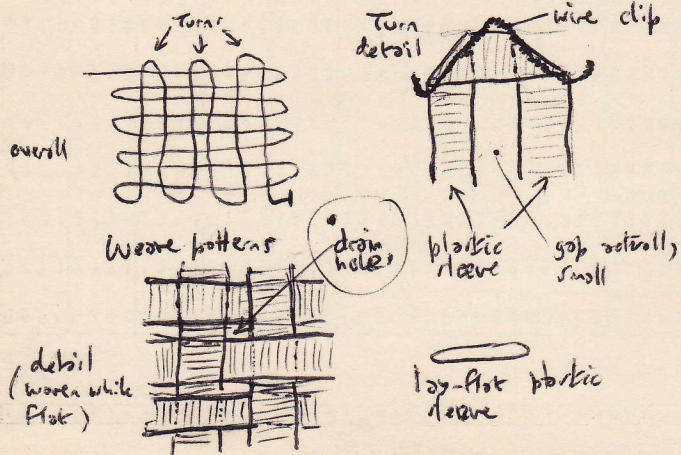 Turns
overall
Turn
detail
wire clip
plastic
sleeve
gap actually
small
Weave patterns
drain
holes
detail
(woven while
flat)
lay-flat plastic
sleeve